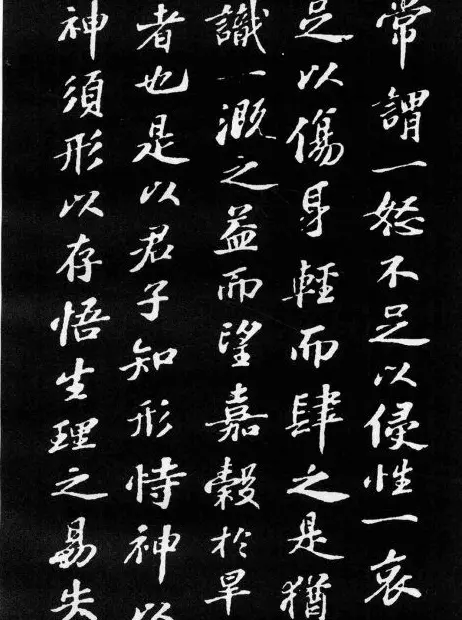 常謂一怒不足以侵性一哀
足以傷身輕而肆之是猶
識一溉之益而望嘉穀於旱
者也是以君子知形恃神以
神須形以存悟生理之易失